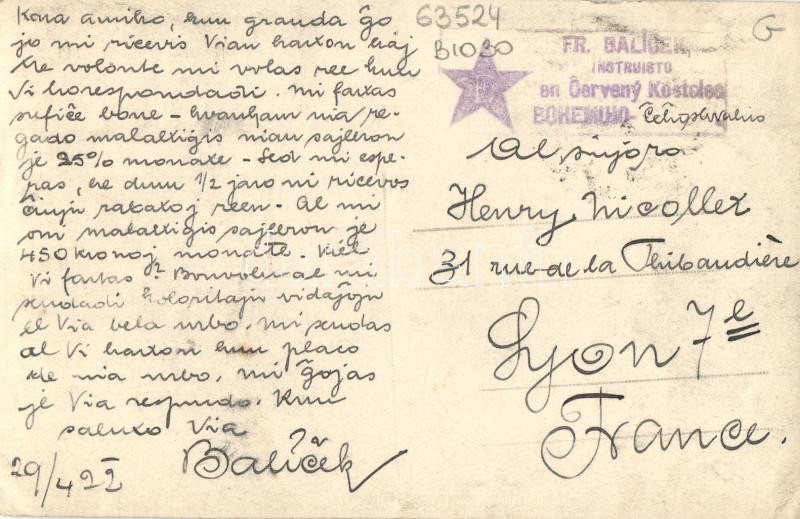 Kara amiko, kun granda ĝo
jo mi ricevis Vian karton kaj
tre volonte mi volas ree kun
Vi korespondadi. Mi fartas
sufiĉe bone - kvankam nia re-
gado malaltigis nian sajleron
je 25% monate - Sed mi espe-
ras, ke dum 1/2 jaro mi ricevos
ĉiujn rabatoj reen. Al mi
oni malaltigis sajleron je
450 kronoj monate. Kiel
Vi fartas? Bonvolu al mi
sendadi koloritajn vidaĵojn
el Via bela urbo. Mi sendas
al Vi karton kun placo
de nia urbo. Mi ĝojas
je Via respondo. Kun
saluto Via
Balíček
29/4 22
63524
B1030
G
FR. BALÍČEK,
INSTRUISTO
en Červený Kostelec
BOHEMUJO-
Al sinjoro
Henry Nicollet
31 rue de la Thibaudière
Lyon 7e
France.